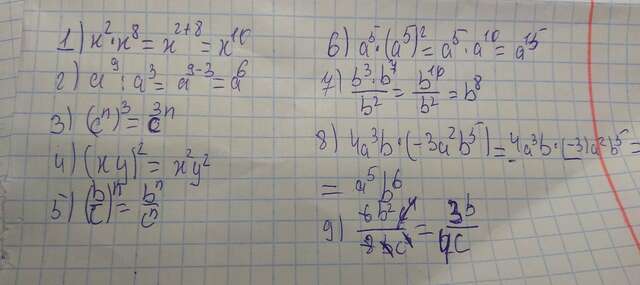 1) x²·x⁸ = x²⁺⁸ = x¹⁰
2) a⁹ : a³ = a⁹⁻³ = a⁶
3) (cⁿ)³ = c³ⁿ
4) (xy)² = x²y²
5) (b/c)ⁿ = bⁿ/cⁿ
6) a⁵·(a⁵)² = a⁵·a¹⁰ = a¹⁵
7) b³·b⁷/b² = b¹⁰/b² = b⁸
8) 4a³b·(-3a²b⁵) = 4a³b·(-3)a²b⁵ =
= a⁵b⁶
9) 6b²c⁴/8bc⁵ = 3b/4c